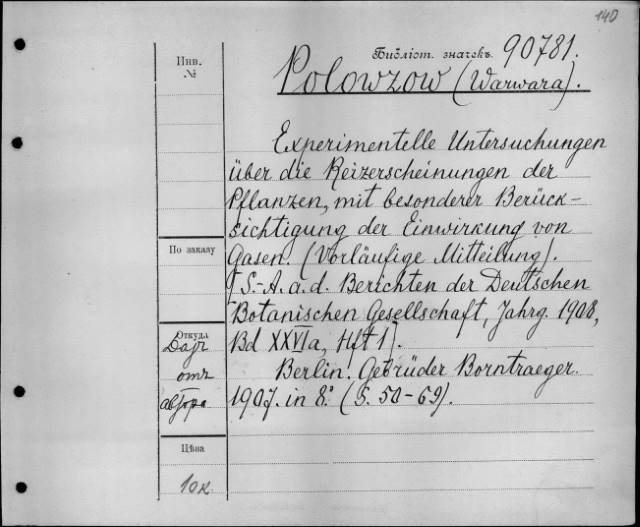 140
Библіот. значекъ 90781.
Инв.
№
Polowzow (Warwara).
Experimentelle Untersuchungen
über die Reizerscheinungen der
Pflanzen, mit besonderer Berück-
sichtigung der Einwirkung von
Gasen. (Vorläufige Mitteilung).
[S.-A. a. d. Berichten der Deutschen
Botanischen Gesellschaft, Jahrg. 1908,
Bd XXVIa, Hft 1].
Berlin. Gebrüder Borntraeger.
1907. in 8°. (S. 50-69).
По заказу
Откуда
Даръ
отъ
автора
Цѣна
10 к.